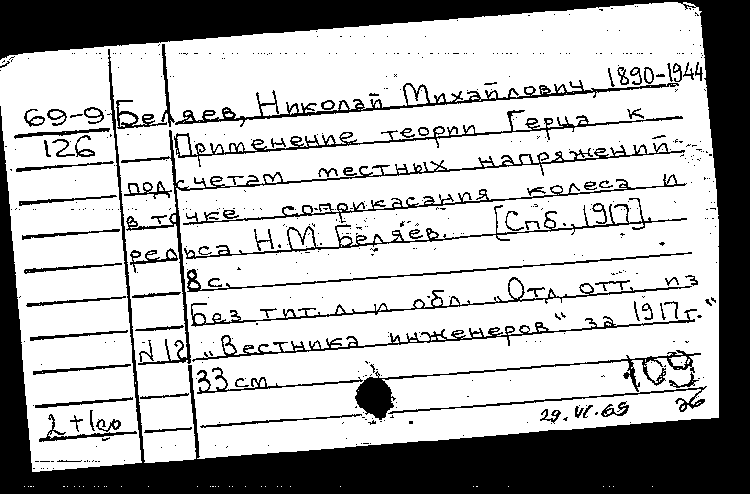 69-9 Беляев, Николай Михайлович, 1890-1944
126 Применение теории Герца к
подсчетам местных напряжений
в точке соприкасания колеса и
рельса. Н.М. Беляев. [Спб., 1917].
8 с.
Без тит. л. и обл. „Отд. отт. из
N 12 „Вестника инженеров“ за 1917 г.“
33 см.
109
29.VI.69